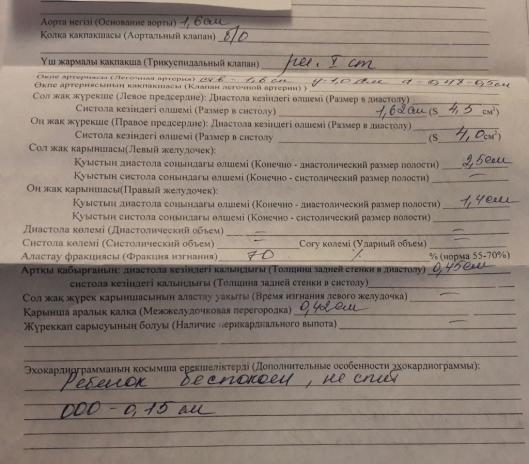 Аорта негізі (Основание аорты) 1,6 см
Қолқа қақпақшасы (Аортальный клапан) б/о
Үш жармалы қақпақша (Трикуспидальный клапан) рег. I ст
Өкпе артериясы (Легочная артерия) 1,6 см
Өкпе артериясының қақпақшасы (Клапан легочной артерии)
Сол жақ жүрекше (Левое предсердие): Диастола кезіндегі өлшемі (Размер в диастолу)
Систола кезіндегі өлшемі (Размер в систолу) 1,62 см (S 4,5 см²)
Оң жақ жүрекше (Правое предсердие): Диастола кезіндегі өлшемі (Размер в диастолу)
Систола кезіндегі өлшемі (Размер в систолу (S 4,0 см²)
Сол жақ қарыншасы(Левый желудочек):
Қуыстын диастола соңындағы өлшемі (Конечно - диастолический размер полости) 2,5 см
Қуыстын систола соңындағы өлшемі (Конечно - систолический размер полости) –
Оң жақ қарыншасы(Правый желудочек):
Қуыстын диастола соңындағы өлшемі (Конечно - диастолический размер полости) 1,4 см
Қуыстын систола соңындағы өлшемі (Конечно - систолический размер полости)
Диастола көлемі (Диастолический объем) –
Систола көлемі (Систолический объем) – Соғу көлемі (Ударный объем) –
Аластау фракциясы (Фракция изгнания) 70 % % (норма 55-70%)
Артқы қабырғанын: диастола кезіндегі калындығы (Толщина задней стенки в диастолу) 0,45 см
систола кезіндегі калындығы (Толщина задней стенки в систолу)
Сол жақ жүрек қарыншасының аластау уақыты (Время изгнания левого желудочка) –
Қарынша аралық қалқа (Межжелудочковая перегородка) 0,42 см
Жүреккап сарысуының болуы (Наличие перикардиального выпота) –
Эхокардиограмманын қосымша ерекшеліктері (Дополнительные особенности эхокардиограммы):
Ребенок беспокоен, не спит
ООО - 0,15 см